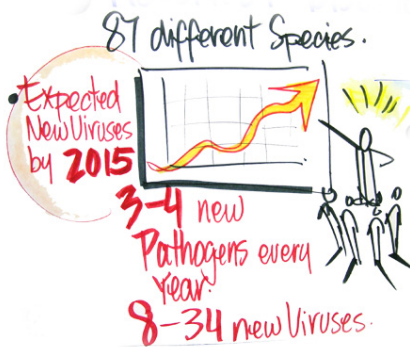 87 different Species.
• Expected
New Viruses
by 2015
3-4 new
Pathogens every
Year.
8-34 new Viruses.